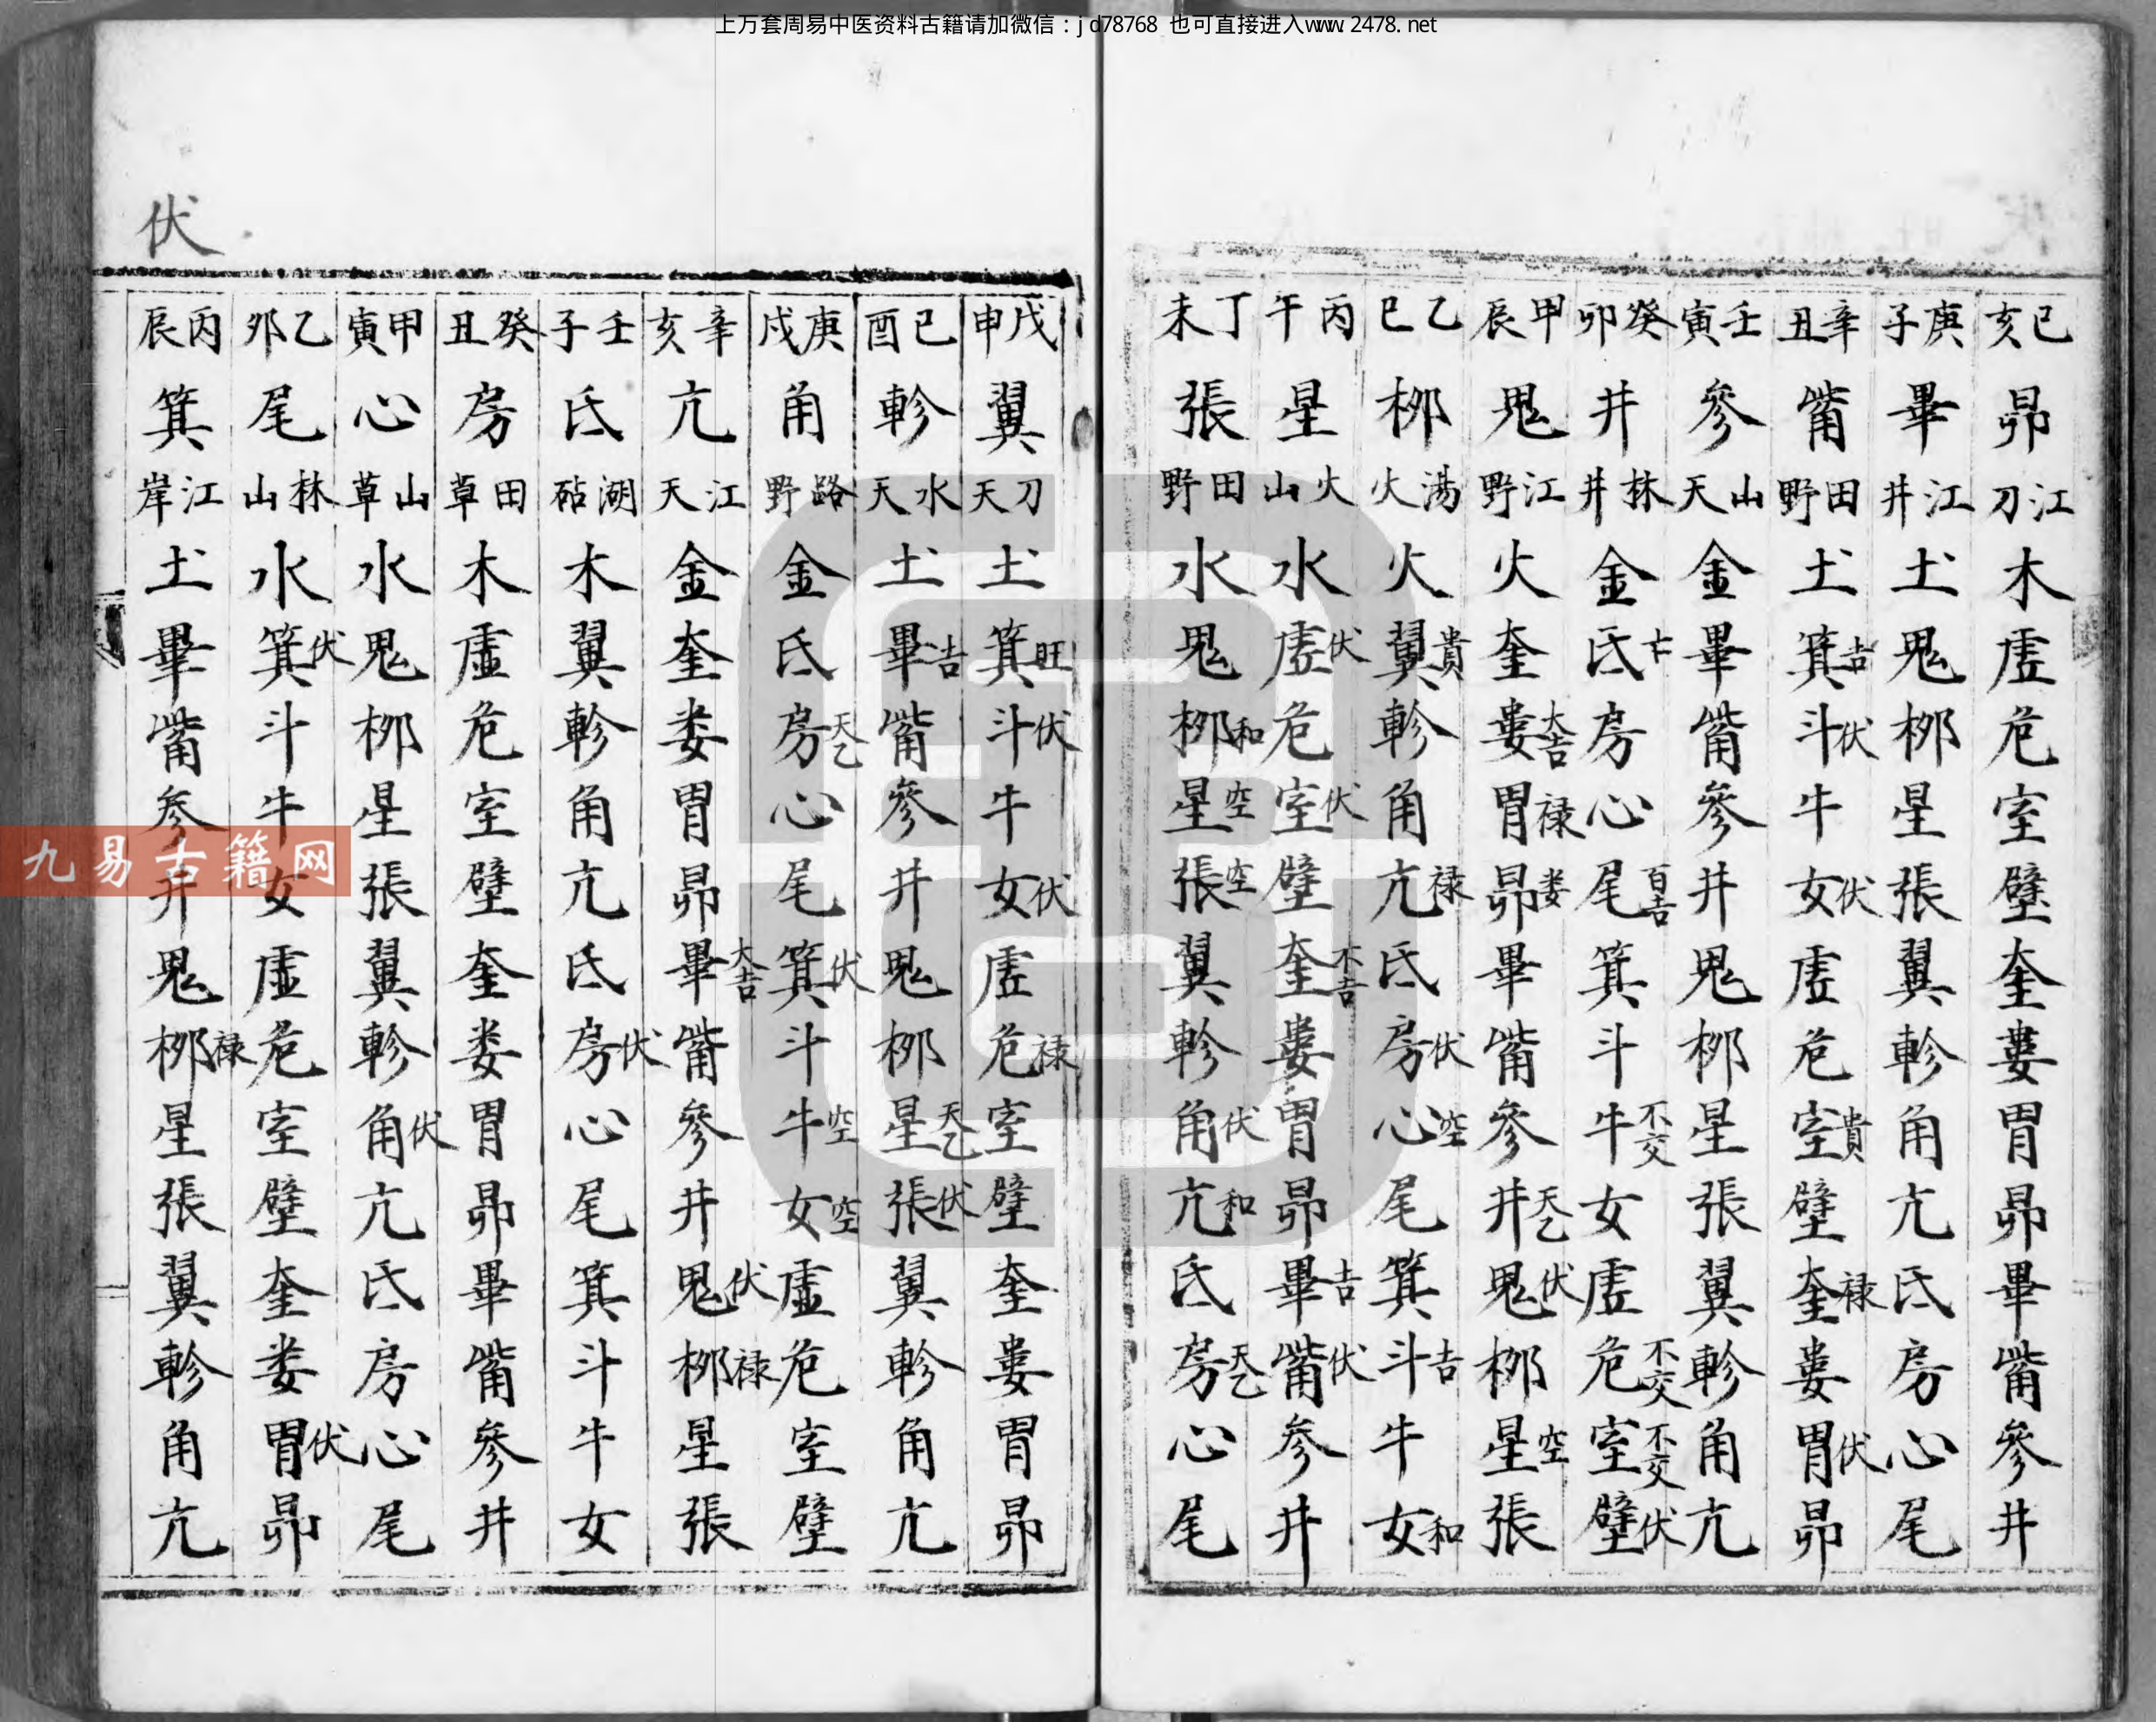 上万套周易中医资料古籍请加微信：jd78768 也可直接进入www.2478.net
己亥 昴 江刀 木 虚 危 室 壁 奎 婁 胃 昴 畢 觜 參 井
庚子 畢 江井 土 鬼 柳 星 張 翼 軫 角 亢 氐 房 心 尾
辛丑 觜 田野 土 箕吉 斗伏 牛 女伏 虚 危 室貴 壁 奎禄 婁 胃伏 昴
壬寅 參 山天 金 畢 觜 參 井 鬼 柳 星 張 翼 軫 角 亢
癸卯 井 林井 金 氐 房 心 尾百吉 箕 斗 牛不交 女 虚 危不交 室不交 壁伏
甲辰 鬼 江野 火 奎 婁大吉 胃禄 昴娄 畢 觜 參 井天乙 鬼伏 柳 星空 張
乙巳 柳 湯火 火 翼貴 軫 角 亢禄 氐 房伏 心空 尾 箕 斗吉 牛 女和
丙午 星 火山 水 虚伏 危 室伏 壁 奎不吉 婁 胃 昴 畢吉 觜伏 參 井
丁未 張 田野 水 鬼 柳和 星空 張空 翼 軫 角伏 亢和 氐 房天乙 心 尾
戊申 翼 刀天 土 箕旺 斗伏 牛 女伏 虚 危禄 室 壁 奎 婁 胃 昴
己酉 軫 水天 土 畢吉 觜 參 井 鬼 柳 星天乙 張伏 翼 軫 角 亢
庚戌 角 路野 金 氐 房天乙 心 尾 箕伏 斗 牛空 女空 虚 危 室 壁
辛亥 亢 江天 金 奎 娄 胃 昴 畢大吉 觜 參 井 鬼伏 柳禄 星 張
壬子 氐 湖砧 木 翼 軫 角 亢 氐 房伏 心 尾 箕 斗 牛 女
癸丑 房 田草 木 虚 危 室 壁 奎 娄 胃 昴 畢 觜 參 井
甲寅 心 山草 水 鬼 柳 星 張 翼 軫 角伏 亢 氐 房 心 尾
乙夘 尾 林山 水 箕伏 斗 牛 女 虚 危 室 壁 奎 娄 胃伏 昴
丙辰 箕 江岸 土 畢 觜 參 井 鬼 柳禄 星 張 翼 軫 角 亢
伏
九易古籍网